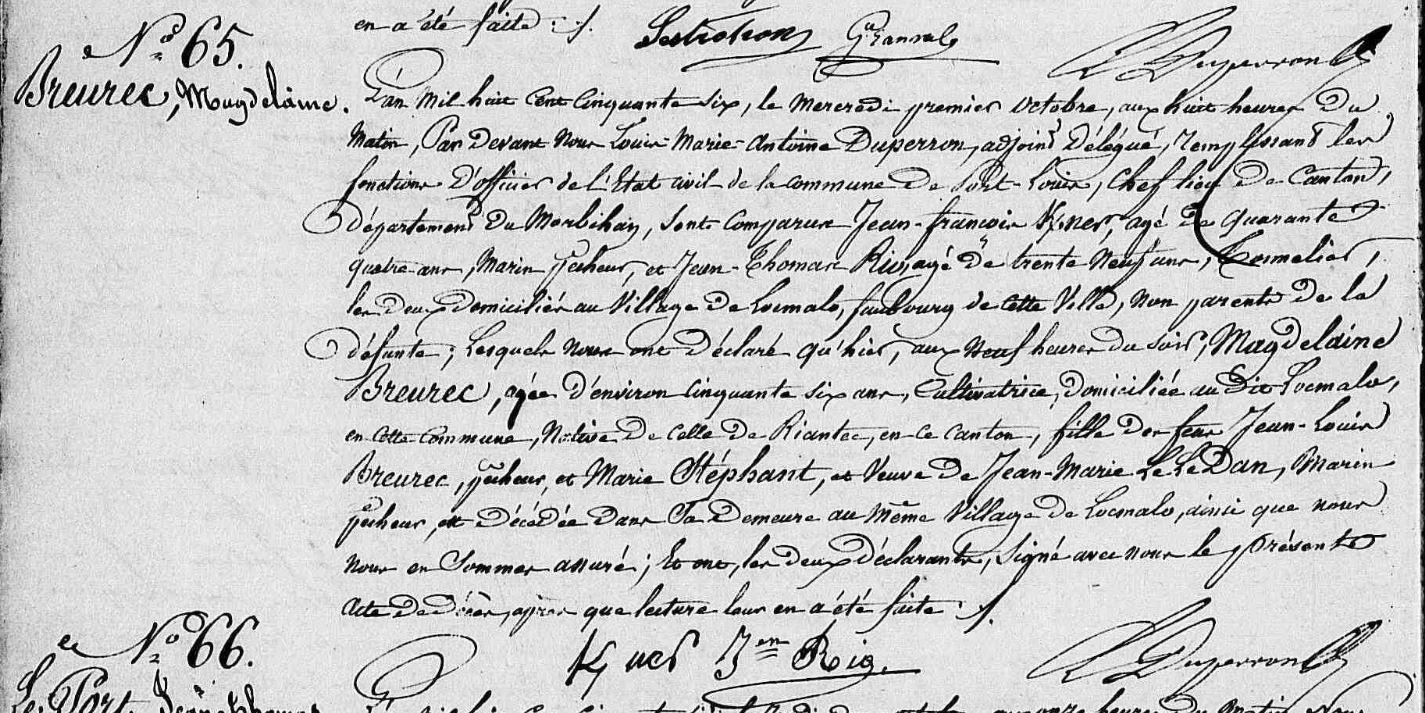 en a été faite ./.
Duperron
N.° 65.
Breurec, Magdelaine.
L'an mil huit cent cinquante six, le mercredi premier octobre, aux huit heures du
matin, Par devant nous Louis-Marie-Antoine Duperron, adjoint délégué, remplissant les
fonctions d'officier de l'Etat civil de la commune de Port-Louis, chef lieu de canton,
département du Morbihan, sont comparus Jean-françois agé de quarante
quatre ans, marin pêcheur, et Jean-Thomas Rio, agé de trente neuf ans, Tonnelier,
les deux domiciliés au Village de Locmalo, faubourg de cette Ville, non parents de la
défunte; Lesquels nous ont déclaré qu'hier, aux neuf heures du soir, Magdelaine
Breurec, agée d'environ cinquante six ans, Cultivatrice, domiciliée au dit Locmalo,
en cette commune, Native de celle de Riantec, en ce canton, fille des feus Jean-Louis
Breurec, pêcheur, et Marie Stéphant, et Veuve de Jean-Marie Le Dan, Marin
pêcheur, est décédée dans sa demeure au même Village de Locmalo, ainsi que nous
nous en sommes assuré; Et ont, les deux déclarants, signé avec nous le présent
acte de décès, après que lecture leur en a été faite ./.
N.° 66.
J.en Rio. Duperron
Le Port,